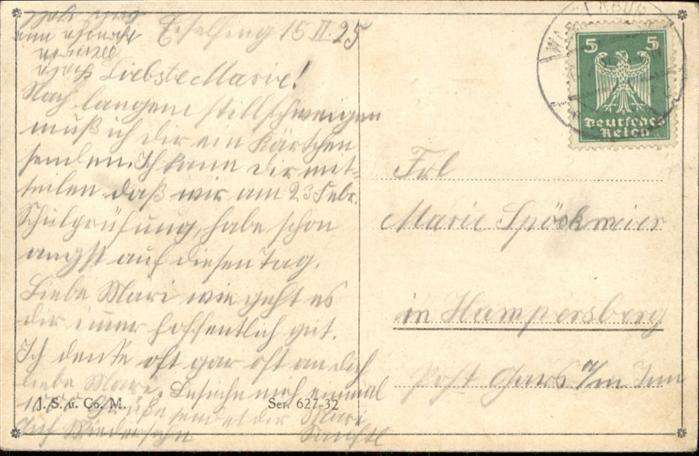 Eiselfing 15 II. 25
Liebste Marie!
Nach langem stillschweigen
muß ich dir ein Kärtchen
senden. Ich kann dir mit-
teilen daß wir am 23 Febr.
Schulprüfung, habe schon
angst auf diesen Tag.
Liebe Mari wie geht es
dir immer hoffentlich gut.
Ich denke oft gar oft an dich
liebe Mari. Besuche mich einmal
Grüße sendet dir Mari
Auf Wiedersehn
J. S. u. Co. M.
Ser. 627-32
5 5
Deutsches
Reich
Frl
Marie Spöckmeier
in Hampersberg
Post Gars a/m Inn